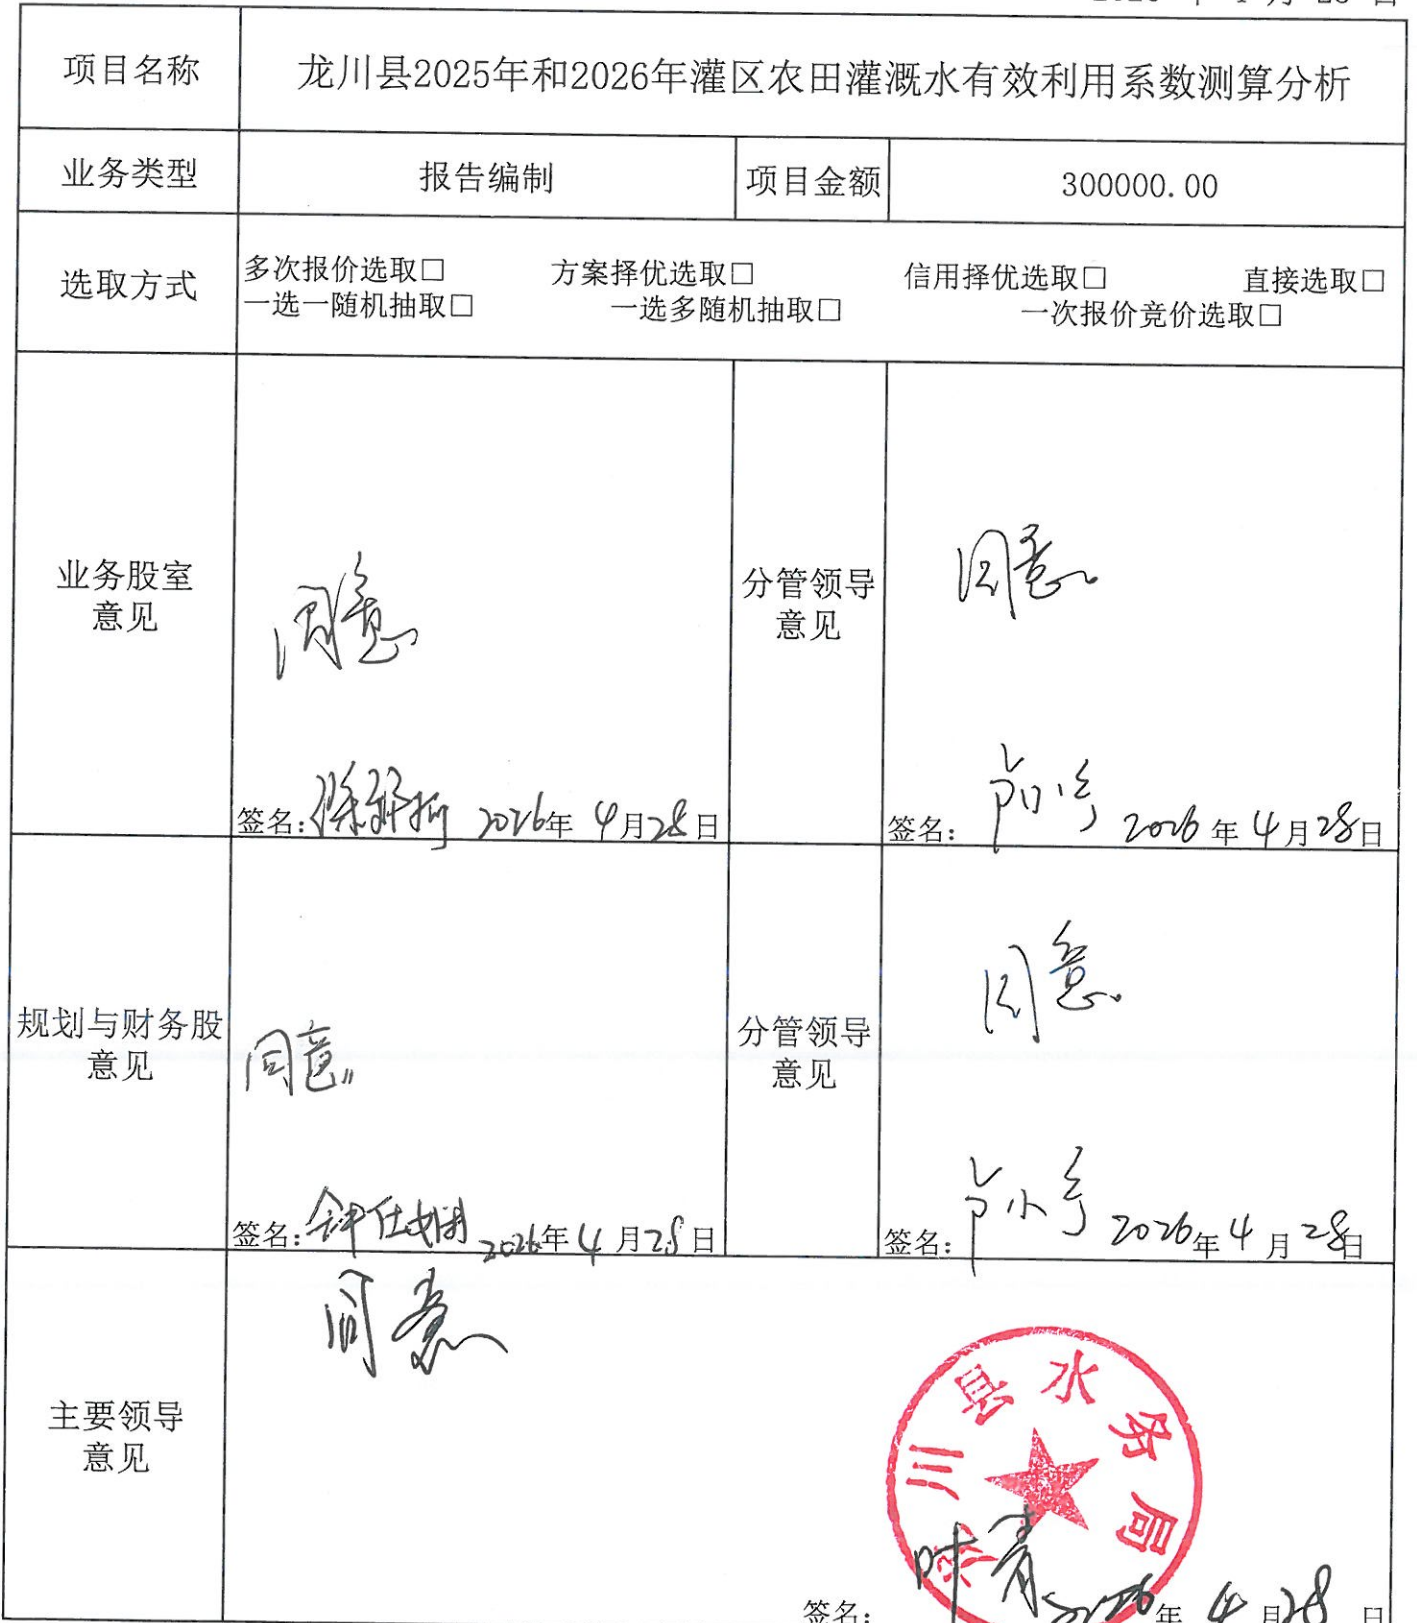 项目名称 龙川县2025年和2026年灌区农田灌溉水有效利用系数测算分析
业务类型 报告编制 项目金额 300000.00
选取方式
多次报价选取□ 方案择优选取□ 信用择优选取□ 直接选取□
一选一随机抽取□ 一选多随机抽取□ 一次报价竞价选取□
业务股室
意见
同意
签名： 2026年 4月28日
分管领导
意见
同意
签名： 2026年4月28日
规划与财务股
意见
同意
签名： 2026年4月28日
分管领导
意见
同意
签名： 2026年4月28日
主要领导
意见
同意
川县水务局
签名： 2026年4月28日